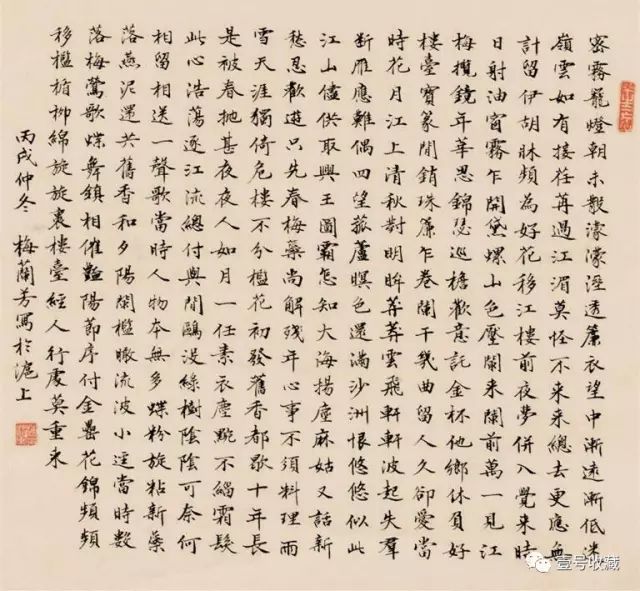 密霧籠燈朝未散濛濛溼透簾衣望中漸遠漸低迷
嶺雲如有接荏苒過江湄莫怪不來來總去更應無
計留伊胡牀頻為好花移江樓前夜夢併入覺來時
日射油窗霧乍開黛螺山色壓闌來闌前萬一見江
梅攬鏡年華思錦瑟巡檐歡意託金杯他鄉休負好
樓臺寶篆閒銷珠簾乍卷闌干幾曲留人久卻愛當
時花月江上清秋對明眸苒苒雲飛軒軒波起失羣
斷雁應難偶四望菰蘆暝色還滿沙洲恨悠悠似此
江山儘供取興王圖霸怎知大海揚塵麻姑又話新
愁忍歡遊只先春梅蘂尚解殘年心事不須料理雨
雪天涯獨倚危樓不分檻花初發舊香都歇十年長
是被春拋甚夜夜人如月一任素衣塵黦不緇霜髮
此心浩蕩逐江流總付與閒鷗沒綠樹陰陰可奈何
相留相送一聲歌當時人物本無多蝶粉旋粘新蘂
落燕泥還共舊香和夕陽闌檻瞰流波小逕當時數
落梅鶯歌蝶舞鎮相催豔陽節序付金罍花錦頻頻
移檻楯柳綿旋旋裹樓臺經人行處莫重來
丙戌仲冬 梅蘭芳寫於滬上
壹号收藏